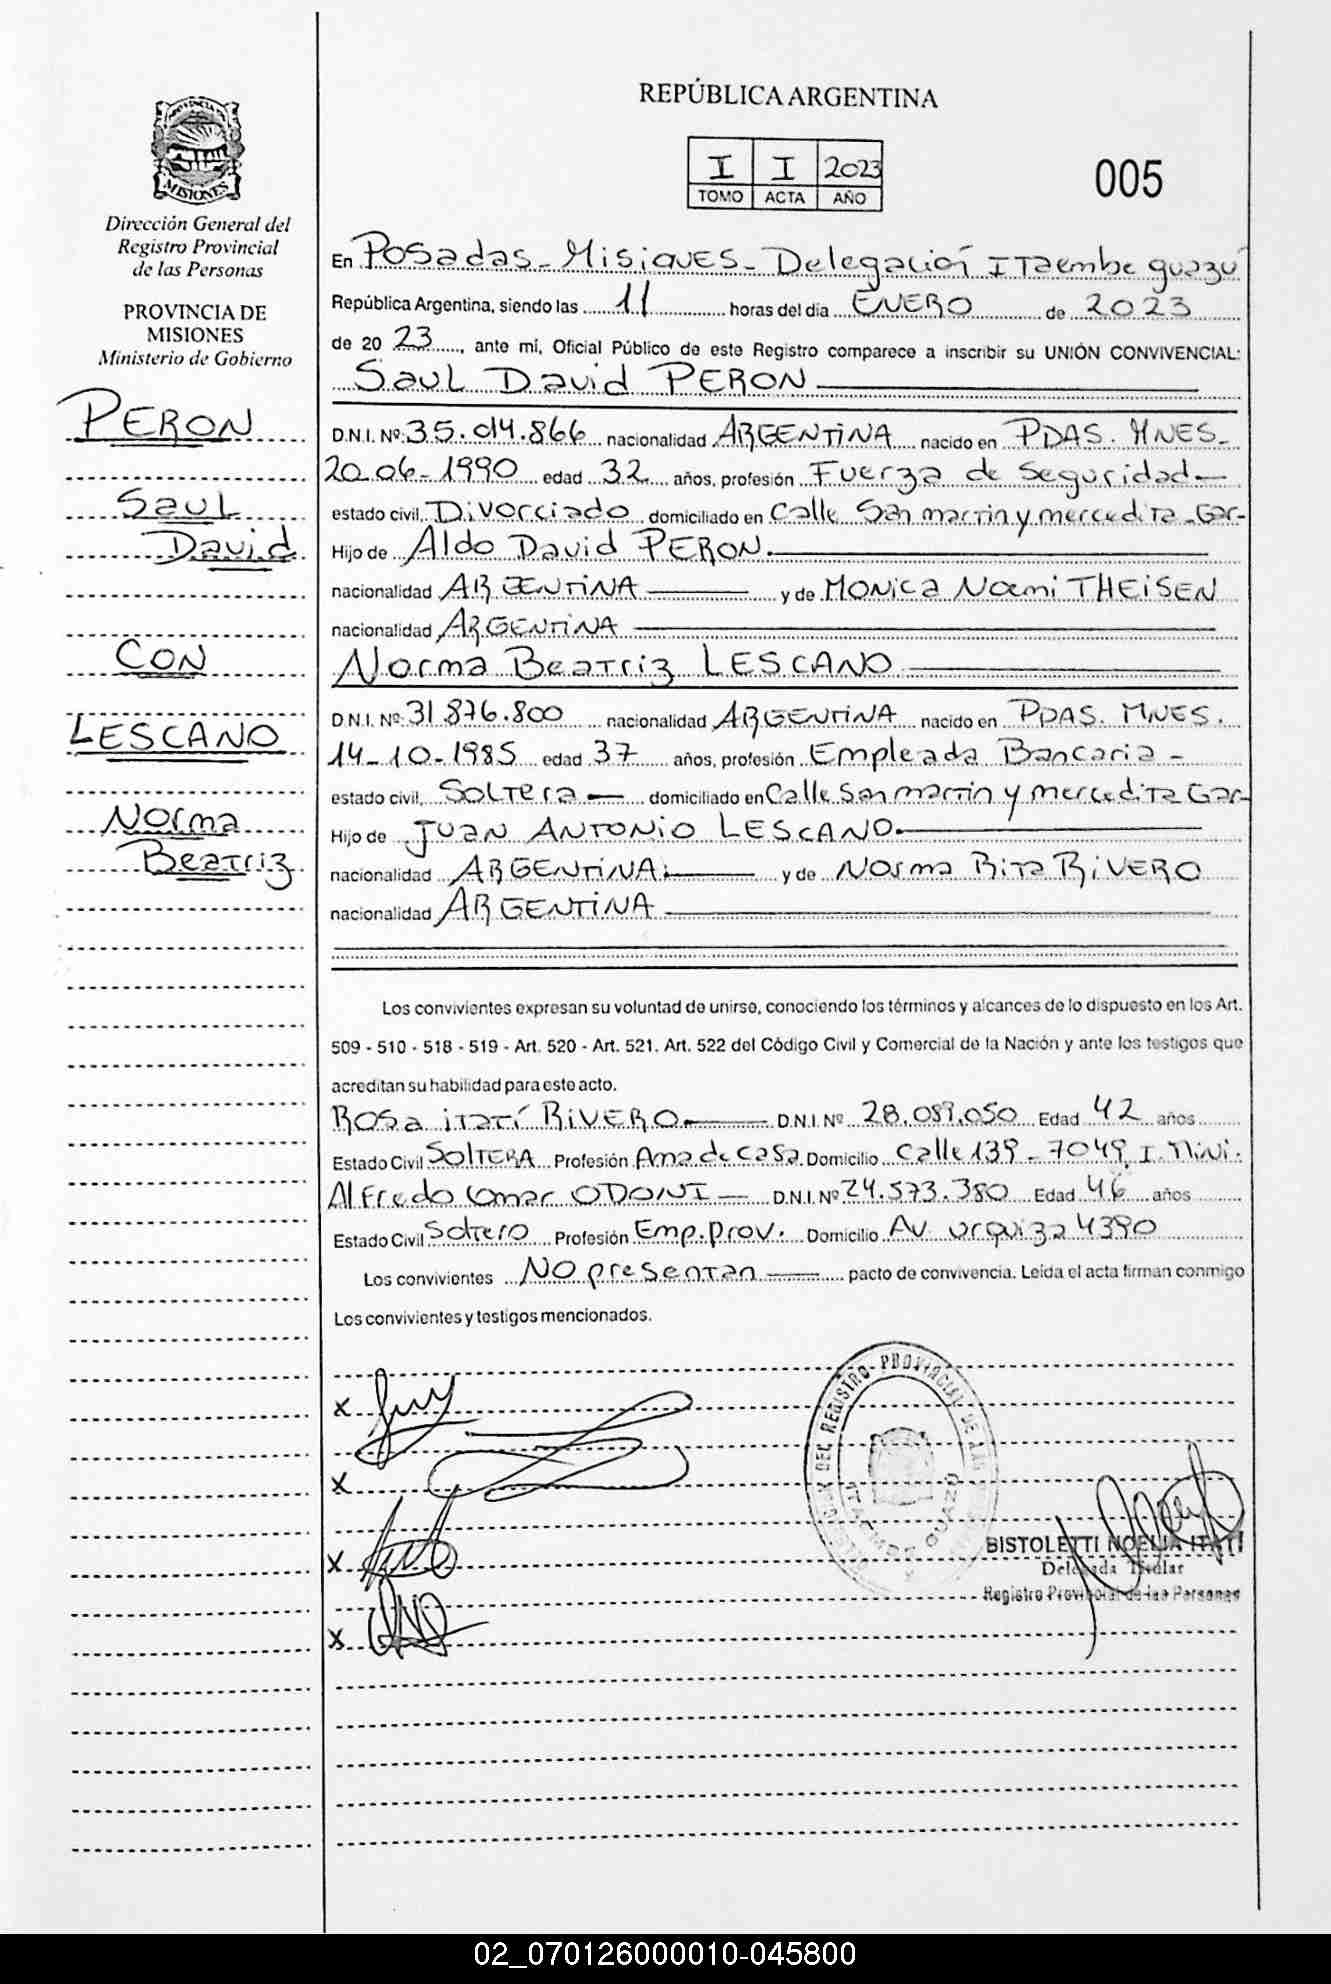 REPÚBLICA ARGENTINA
I I 2023
TOMO ACTA AÑO
005
PROVINCIA DE MISIONES
Dirección General del
Registro Provincial
de las Personas
PROVINCIA DE
MISIONES
Ministerio de Gobierno
PERON
Saul
David
CON
LESCANO
Norma
Beatriz
En Posadas - Misiones - Delegación Itaembe guazú
República Argentina, siendo las 11 horas del día ENERO de 2023
de 20 23, ante mí, Oficial Público de este Registro comparece a inscribir su UNIÓN CONVIVENCIAL:
Saul David PERON
D.N.I. Nº: 35.014.866 nacionalidad ARGENTINA nacido en PDAS. MNES-
20-06-1990 edad 32 años, profesión Fuerza de Seguridad -
estado civil, Divorciado domiciliado en Calle San martin y mercedita - Gar-
Hijo de Aldo David PERON.
nacionalidad ARGENTINA y de MONICA Noemi THEISEN
nacionalidad ARGENTINA
Norma Beatriz LESCANO
D.N.I. Nº: 31.876.800 nacionalidad ARGENTINA nacido en PDAS. MNES.
14-10-1985 edad 37 años, profesión Empleada Bancaria -
estado civil, Soltera - domiciliado en Calle San martin y mercedita Gar-
Hijo de JUAN ANTONIO LESCANO.
nacionalidad ARGENTINA y de Norma Rita RIVERO
nacionalidad ARGENTINA
Los convivientes expresan su voluntad de unirse, conociendo los términos y alcances de lo dispuesto en los Art.
509 - 510 - 518 - 519 - Art. 520 - Art. 521. Art. 522 del Código Civil y Comercial de la Nación y ante los testigos que
acreditan su habilidad para este acto.
ROSA itatí RIVERO. D.N.I. Nº 28.089.050 Edad 42 años
Estado Civil SOLTERA Profesión Ama de casa Domicilio Calle 139 - 7049 I. Miní.
Alfredo Omar ODONI - D.N.I. Nº 24.573.380 Edad 46 años
Estado Civil Soltero Profesión Emp. prov. Domicilio Av. urquiza 4390
Los convivientes No presentan pacto de convivencia. Leída el acta firman conmigo
Los convivientes y testigos mencionados.
x
x
x
x
DEL REGISTRO PROVINCIAL DE LAS
ITAEMBE GUAZÚ
BISTOLETTI NOELIA ITATI
Delegada Titular
Registro Provincial de las Personas
02_070126000010-045800